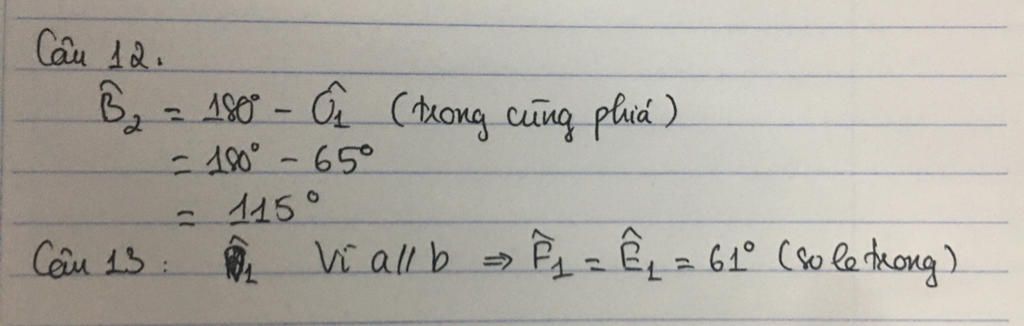 Câu 12.
B̂₂ = 180° - Ô₁ (trong cùng phiá)
= 180° - 65°
= 115°
Câu 13: Vì a//b ⇒ F̂₁ = Ê₁ = 61° (so le trong)